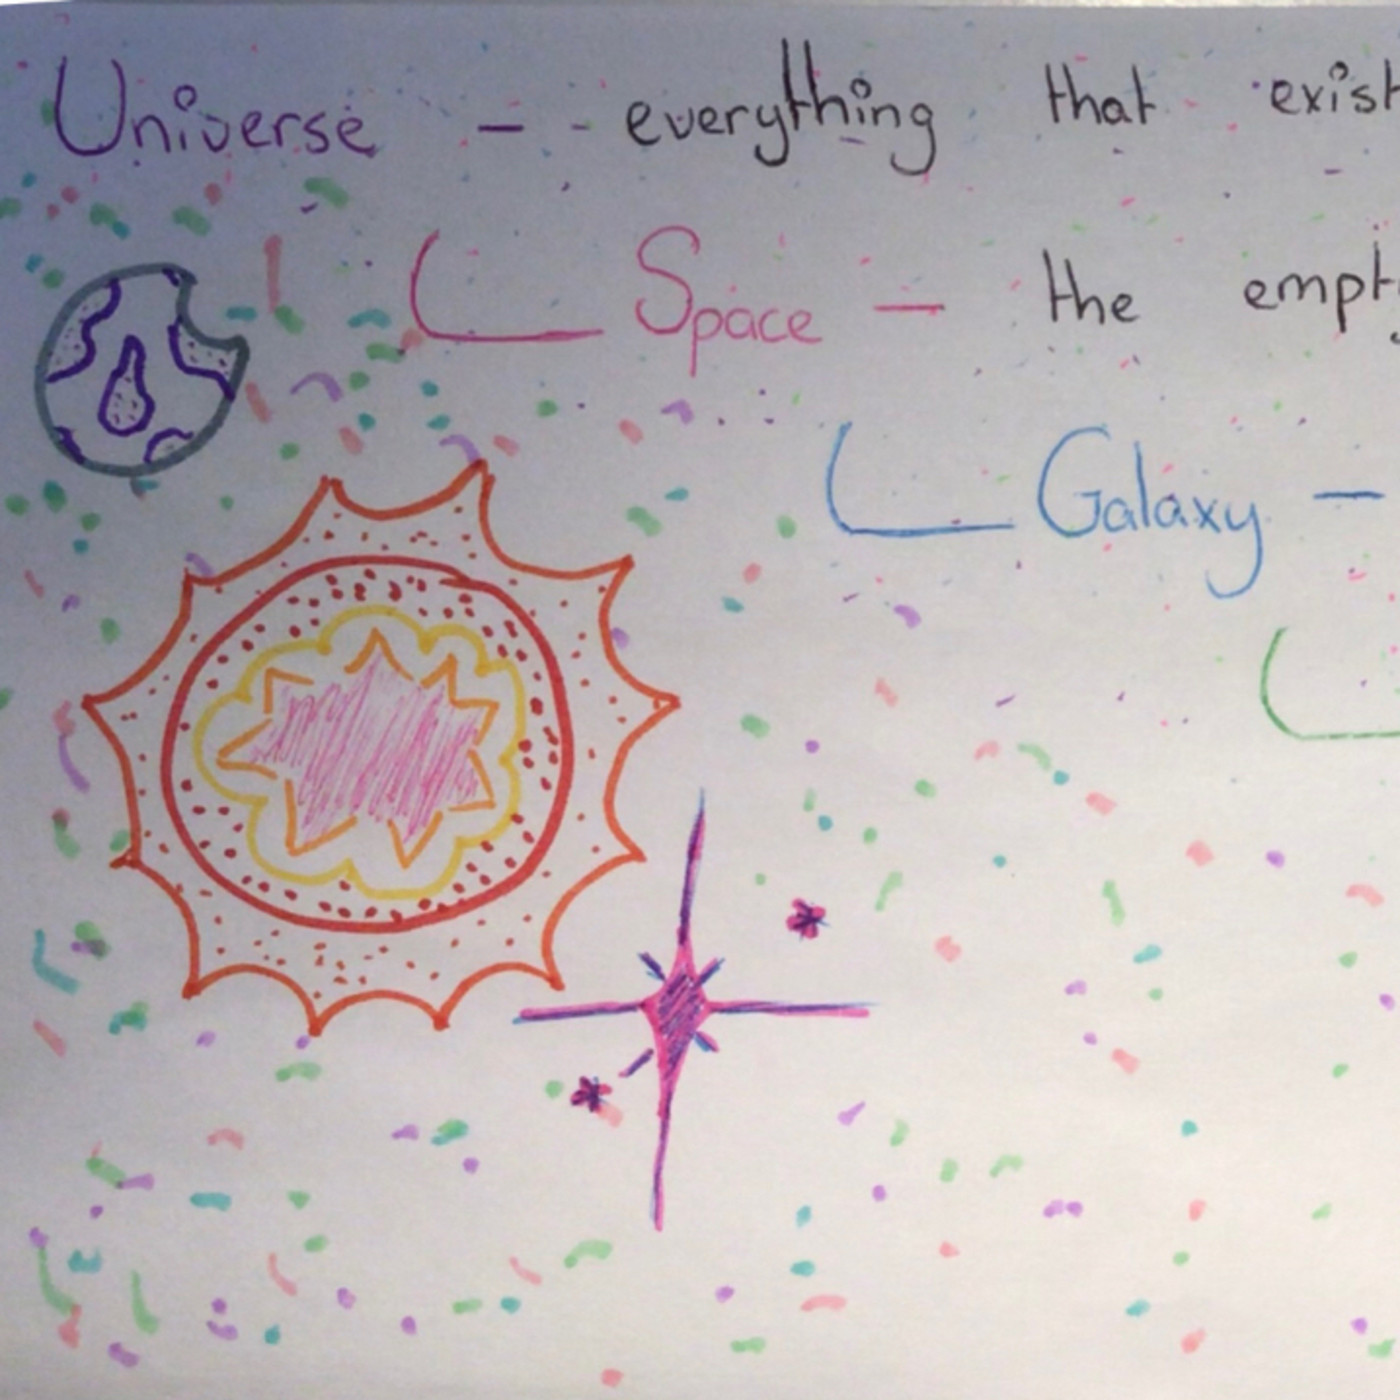 Universe - - everything that exist
Space - the empt
Galaxy -